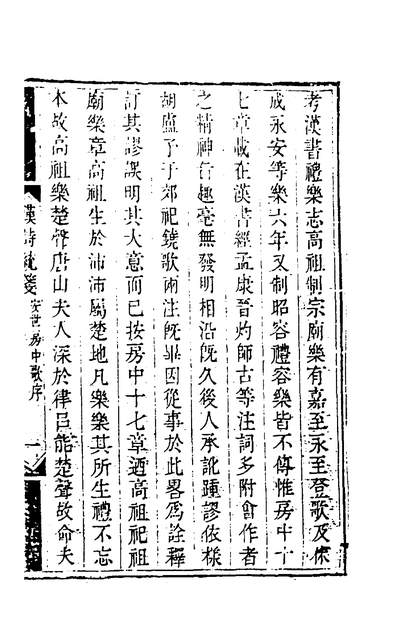 考漢書禮樂志高祖制宗廟樂有嘉至永至登歌及休
成永安等樂六年又制昭容禮容樂皆不傳惟房中十
七章載在漢書經孟康晉灼師古等注詞多附會作者
之精神旨趣毫無發明相沿旣久後人承訛踵謬依樣
胡盧予于郊祀鐃歌兩注旣畢因從事於此畧爲詮釋
訂其謬誤明其大意而已按房中十七章迺高祖祀祖
廟樂章高祖生於沛沛屬楚地凡樂樂其所生禮不忘
本故高祖樂楚聲唐山夫人深於律呂能楚聲故命夫
漢詩統箋
安世房中歌序
一